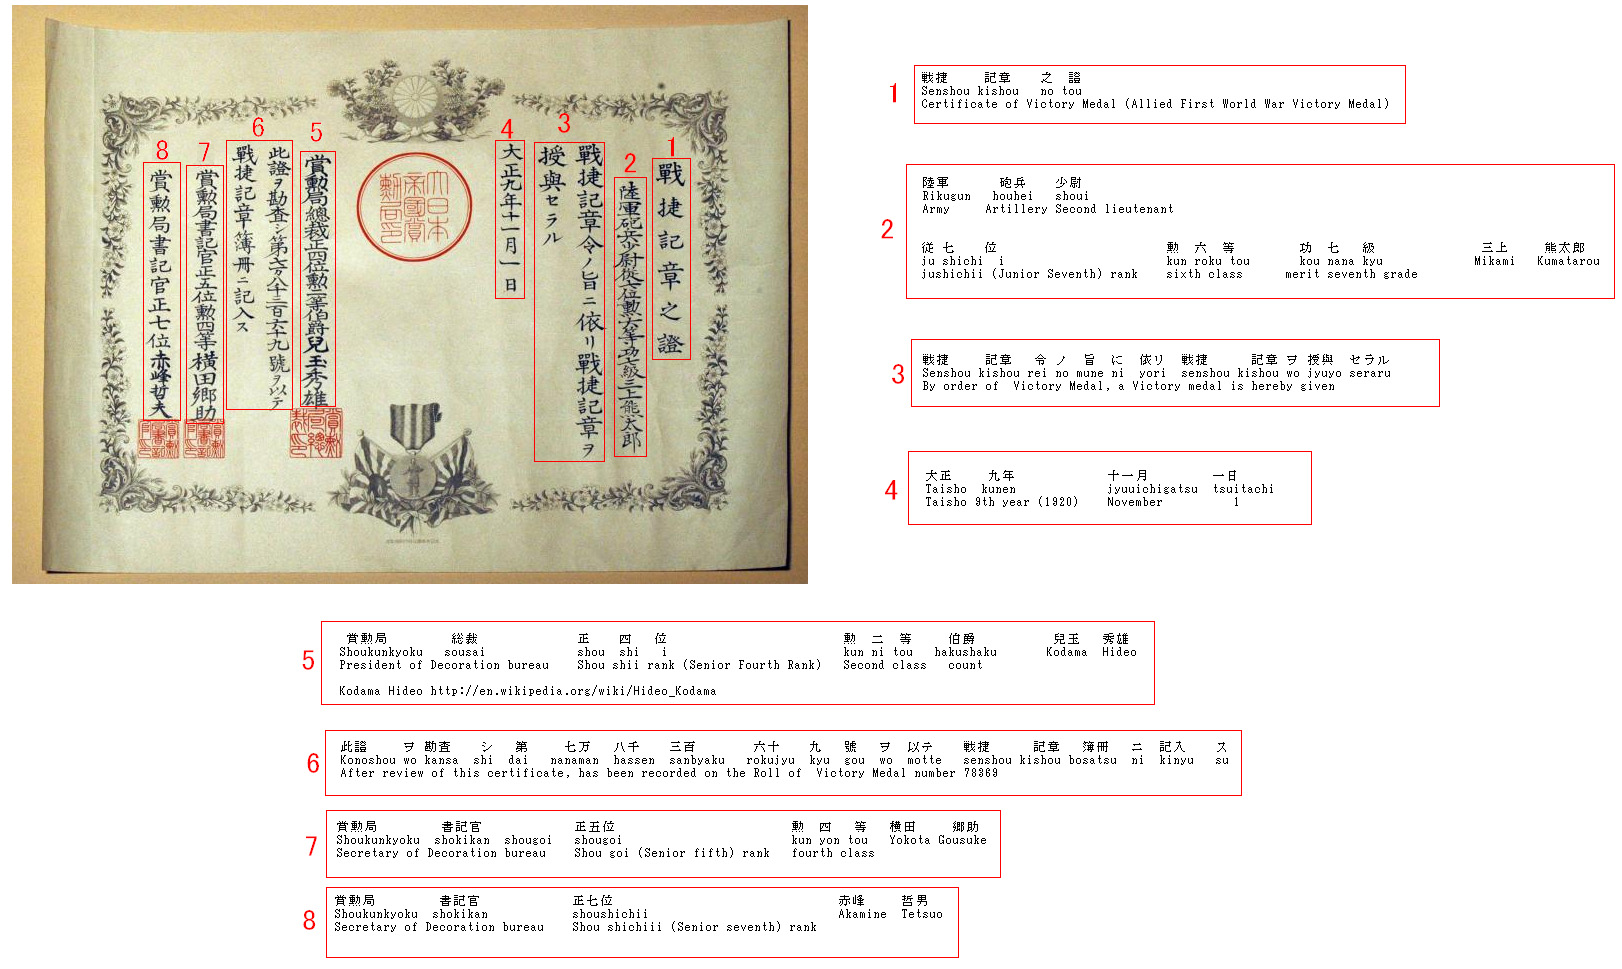 1
戰捷記章之證
2
陸軍砲兵少尉從七位勲六等功七級三上熊太郎
3
戰捷記章令ノ旨ニ依リ戰捷記章ヲ
授與セラル
4
大正九年十一月一日
大日本
帝國賞
勲局印
5
賞勲局總裁正四位勲二等伯爵兒玉秀雄
6
此證ヲ勘査シ第七万八千三百六十九號ヲ以テ
戰捷記章簿冊ニ記入ス
7
賞勲局書記官正五位勲四等横田郷助
8
賞勲局書記官正七位赤峰哲夫
1
戦捷 記章 之 證
Senshou kishou no tou
Certificate of Victory Medal (Allied First World War Victory Medal)
2
陸軍 砲兵 少尉
Rikugun houhei shoui
Army Artillery Second lieutenant
従 七 位 勲 六 等 功 七 級 三上 熊太郎
ju shichi i kun roku tou kou nana kyu Mikami Kumatarou
jushichii (Junior Seventh) rank sixth class merit seventh grade
3
戦捷 記章 令 ノ 旨 に 依リ 戦捷 記章 ヲ 授與 セラル
Senshou kishou rei no mune ni yori senshou kishou wo jyuyo seraru
By order of Victory Medal, a Victory medal is hereby given
4
大正 九年 十一月 一日
Taisho kunen jyuuichigatsu tsuitachi
Taisho 9th year (1920) November 1
5
賞勲局 総裁 正 四 位 勲 二 等 伯爵 兒玉 秀雄
Shoukunkyoku sousai shou shi i kun ni tou hakushaku Kodama Hideo
President of Decoration bureau Shou shii rank (Senior Fourth Rank) Second class count
Kodama Hideo http://en.wikipedia.org/wiki/Hideo_Kodama
6
此證 ヲ 勘査 シ 第 七万 八千 三百 六十 九 號 ヲ 以テ 戦捷 記章 簿冊 ニ 記入 ス
Konoshou wo kansa shi dai nanaman hassen sanbyaku rokujyu kyu gou wo motte senshou kishou bosatsu ni kinyu su
After review of this certificate, has been recorded on the Roll of Victory Medal number 78369
7
賞勲局 書記官 正五位 勲 四 等 横田 郷助
Shoukunkyoku shokikan shougoi shougoi kun yon tou Yokota Gousuke
Secretary of Decoration bureau Shou goi (Senior fifth) rank fourth class
8
賞勲局 書記官 正七位 赤峰 哲男
Shoukunkyoku shokikan shoushichii Akamine Tetsuo
Secretary of Decoration bureau Shou shichiii (Senior seventh) rank